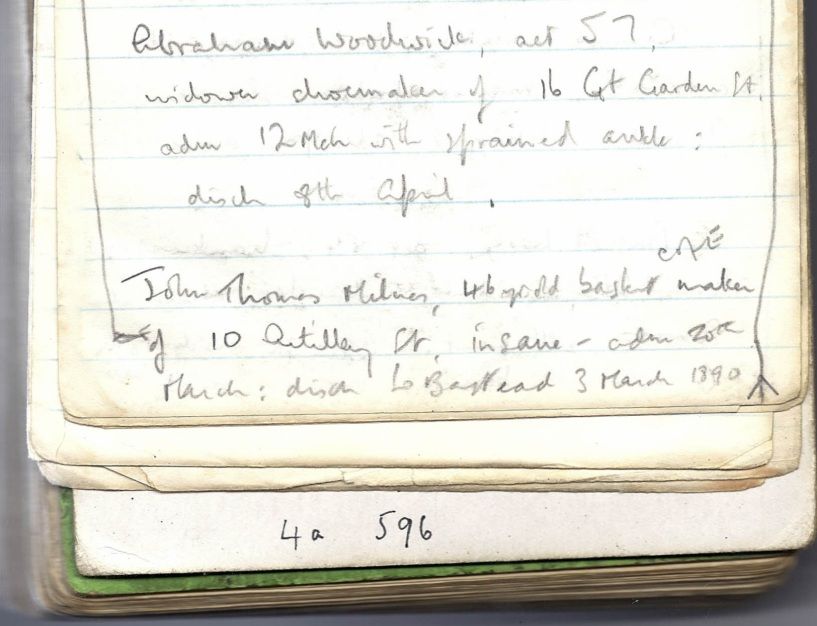 Abraham Woodwick, aet 57,
widower shoemaker of 16 Gt Garden St,
adm 12 Mch with sprained ankle :
disch 8th April.
John Thomas Milnes, 46 yr old basket maker
of 10 Artillery St, insane - adm 20th
March : disch to Banstead 3 March 1890
4a 596